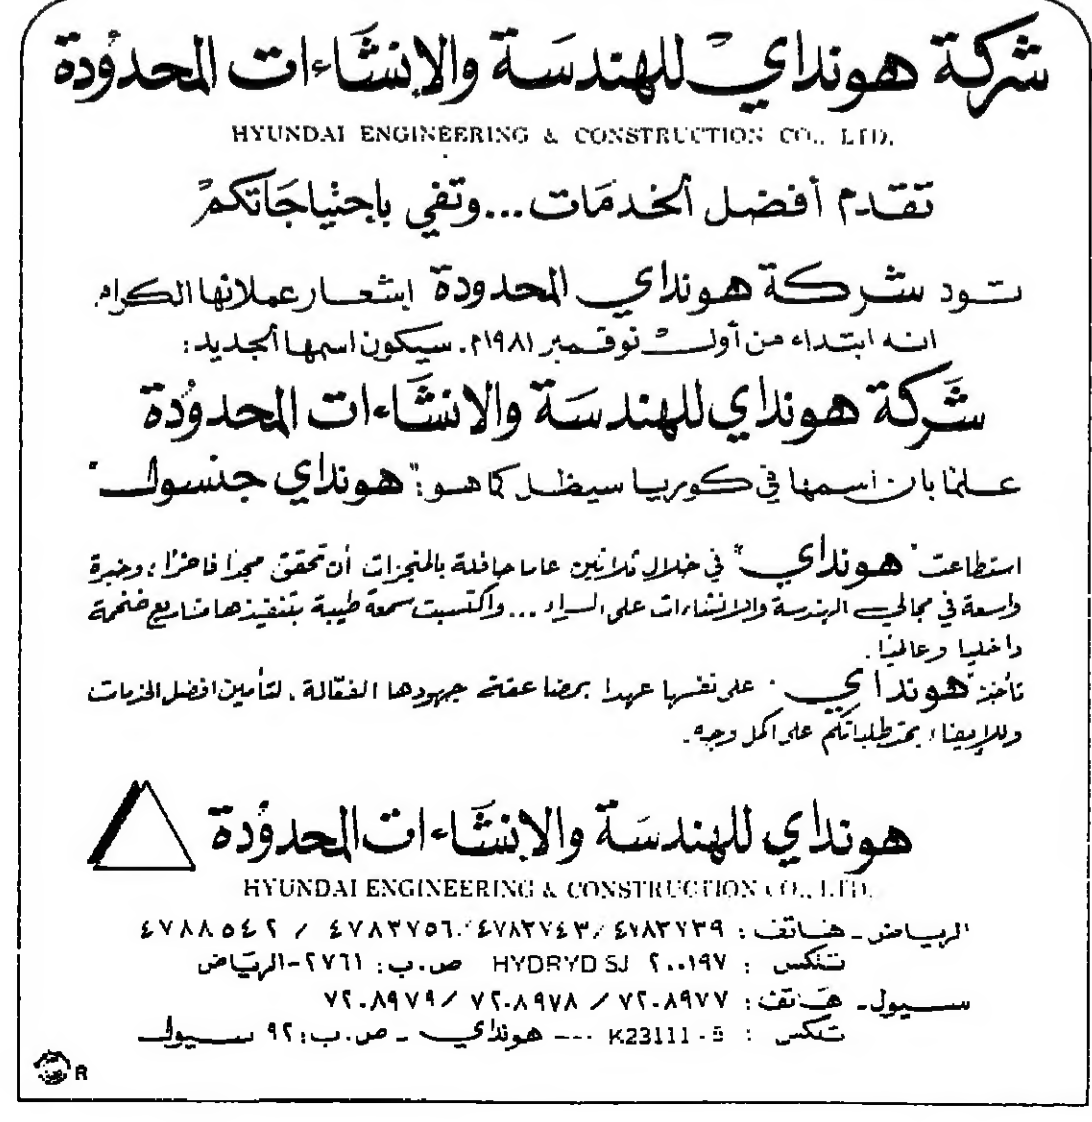 شركة هونداي للهندسة والإنشاءات المحدودة
HYUNDAI ENGINEERING & CONSTRUCTION CO., LTD.
تقدم أفضل الخدمات...وتفي باحتياجاتكم
تود شركة هونداي المحدودة إشعار عملائها الكرام
انه ابتداء من أول نوفمبر ١٩٨١م. سيكون اسمها الجديد:
شركة هونداي للهندسة والانشاءات المحدودة
علما بان اسمها في كوريا سيظل كما هو: "هونداي جنسول"
استطاعت "هونداي" في خلال ثلاثين عاما حافلة بالمنجزات أن تحقق مجدا فاخرا، وخبرة
واسعة في مجالي الهندسة والانشاءات على السواء ... واكتسبت سمعة طيبة بتنفيذها مشاريع ضخمة
داخليا وعالميا.
تأخذ "هونداي" على نفسها عهدا بمضاعفة جهودها الفعّالة. لتأمين افضل الخدمات
وللإيفاء بمتطلباتكم على اكمل وجه.
هونداي للهندسة والإنشاءات المحدودة
HYUNDAI ENGINEERING & CONSTRUCTION CO., LTD.
الرياض - هاتف: ٤٧٨٣٧٣٩/ ٤٧٨٣٧٤٣/ ٤٧٨٣٧٥٦ / ٤٧٨٨٥٤٢
تلكس : ٢٠٠١٩٧ HYDRYD SJ ص.ب: ٢٧٦١-الرياض
سيول - هاتف: ٧٢٠٨٩٧٧ / ٧٢٠٨٩٧٨ / ٧٢٠٨٩٧٩
تلكس : K23111-5 --- هونداي - ص.ب: ٩٢ سيول
R